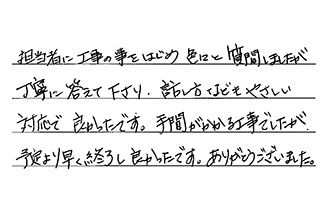 担当者に工事の事をはじめ色々と質問しましたが
丁寧に答えて下さり、話し方などもやさしい
対応で良かったです。手間がかかる工事でしたが、
予定より早く終了し良かったです。ありがとうございました。